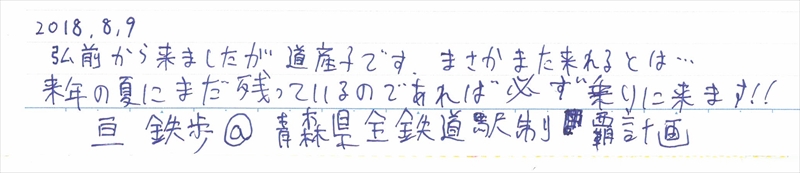 2018.8.9
弘前から来ましたが道産子です。まさかまた来れるとは…
来年の夏にまだ残っているのであれば必ず乗りに来ます!!
亘 鉄歩@青森県全鉄道駅制覇計画